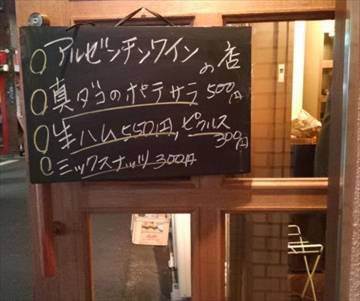 アルゼンチンワインの店
真ダコのポテサラ 500円
生ハム550円, ピクルス300円
ミックスナッツ 300円